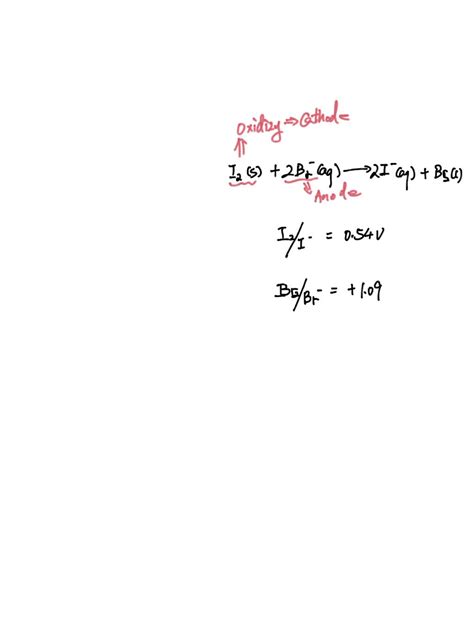 Oxidizing ⇒ Cathode
I₂(s) + 2Br⁻(aq) → 2I⁻(aq) + Br₂(l)
Anode
I₂/I⁻ = 0.54V
Br₂/Br⁻ = +1.09